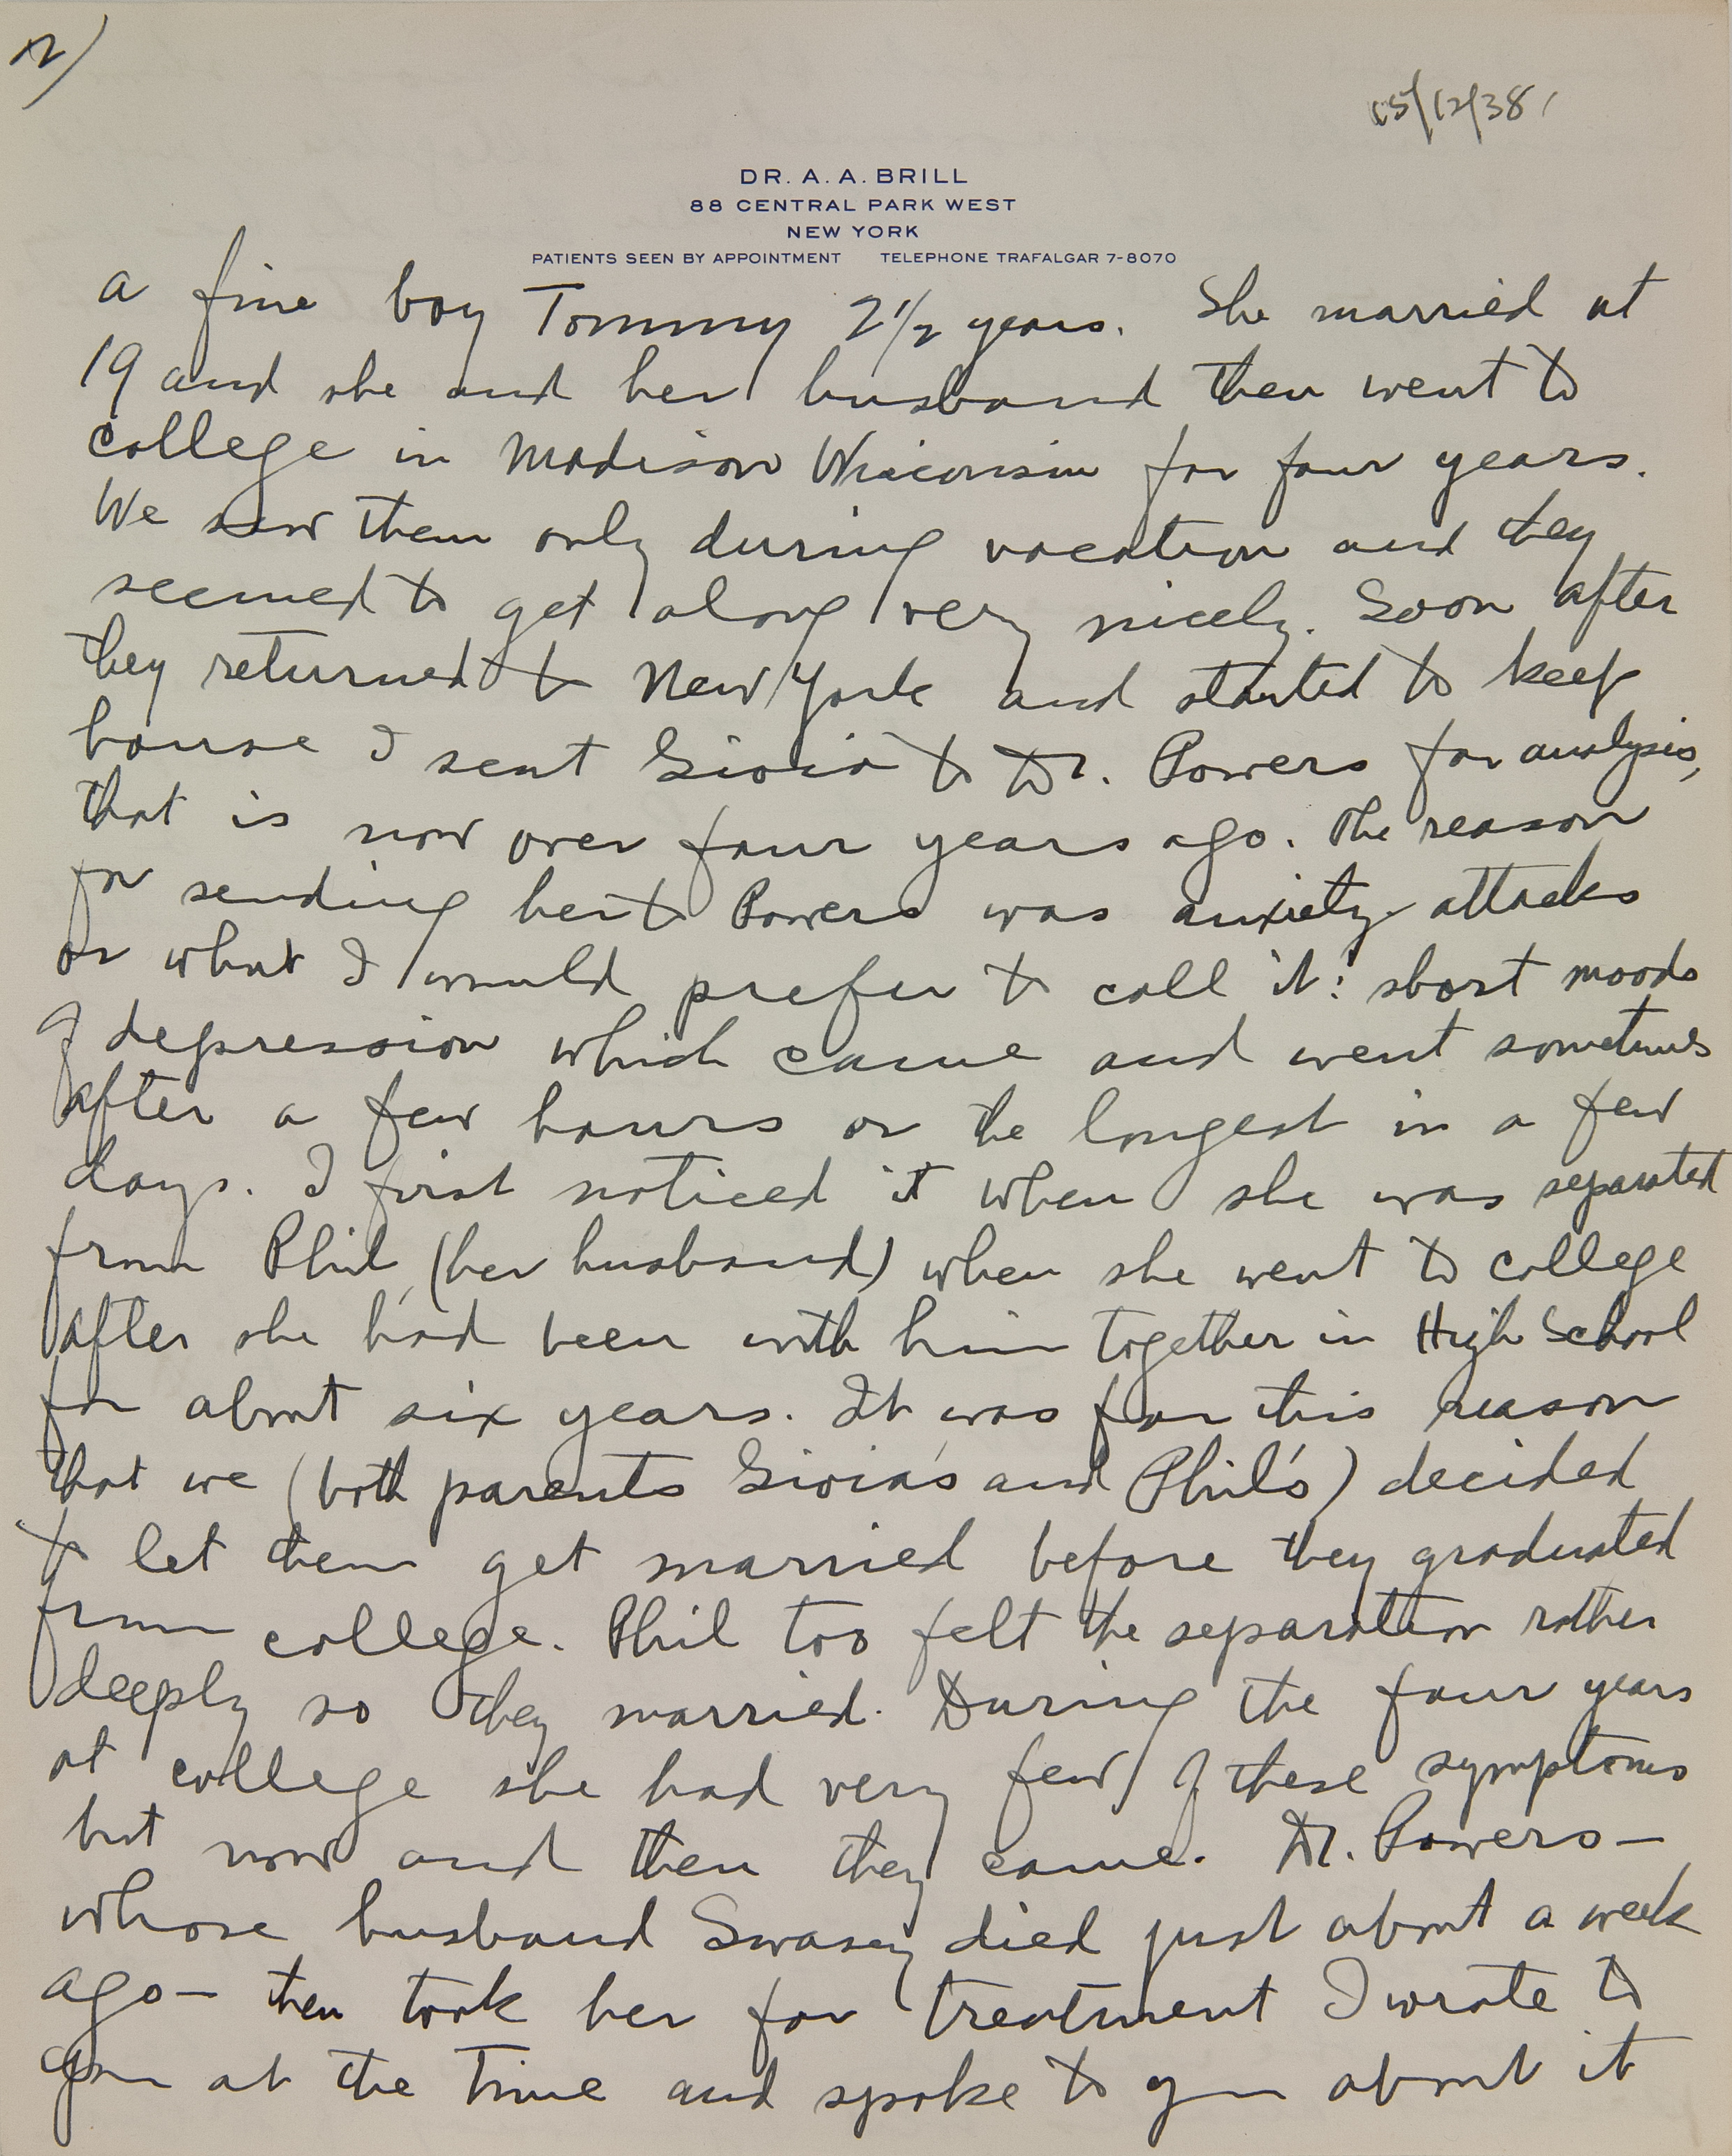 2)
5/12/38
DR. A. A. BRILL
88 CENTRAL PARK WEST
NEW YORK
PATIENTS SEEN BY APPOINTMENT TELEPHONE TRAFALGAR 7-8070
a fine boy Tommy 2 1/2 years. She married at
19 and she and her husband then went to
college in Madison Wisconsin for four years.
We saw them only during vacation and they
seemed to get along very nicely. Soon after
they returned to New York and started to keep
house I sent Gioia to Dr. Powers for analysis,
that is now over four years ago. The reason
for sending her to Powers was anxiety attacks
or what I would prefer to call it: short moods
of depression which came and went sometimes
after a few hours or the longest in a few
days. I first noticed it when she was separated
from Phil (her husband) when she went to college
after she had been with him together in High School
for about six years. It was for this reason
that we (both parents Gioia's and Phil's) decided
to let them get married before they graduated
from college. Phil too felt the separation rather
deeply so they married. During the four years
at college she had very few of these symptoms
but now and then they came. Dr. Powers—
whose husband Swasey died just about a week
ago— then took her for treatment I wrote to
you at the time and spoke to you about it